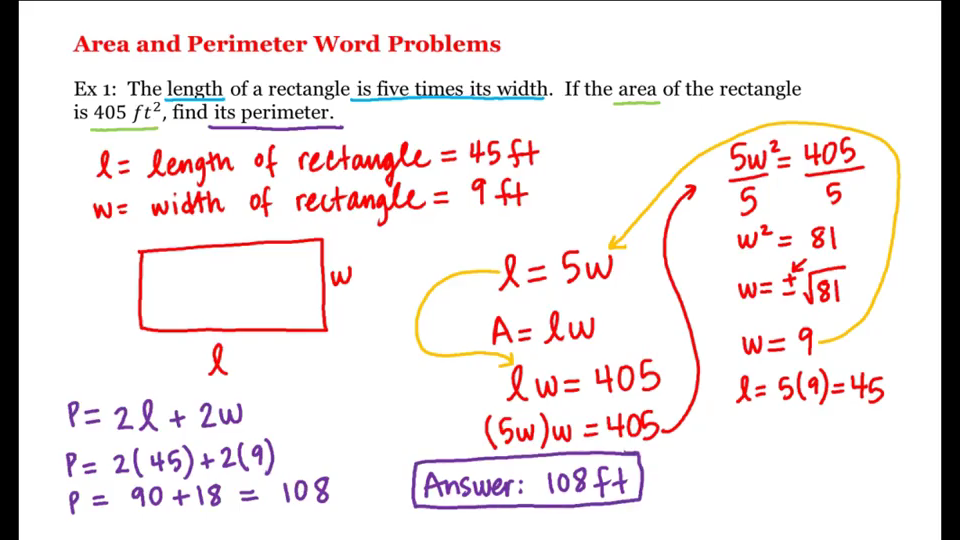 Area and Perimeter Word Problems
Ex 1: The length of a rectangle is five times its width. If the area of the rectangle
is 405 ft², find its perimeter.
l = length of rectangle = 45 ft
w = width of rectangle = 9 ft
w
l
P = 2l + 2w
P = 2(45) + 2(9)
P = 90 + 18 = 108
l = 5w
A = lw
lw = 405
(5w)w = 405
Answer: 108 ft
5w² = 405
5 5
w² = 81
w = ±√81
w = 9
l = 5(9) = 45